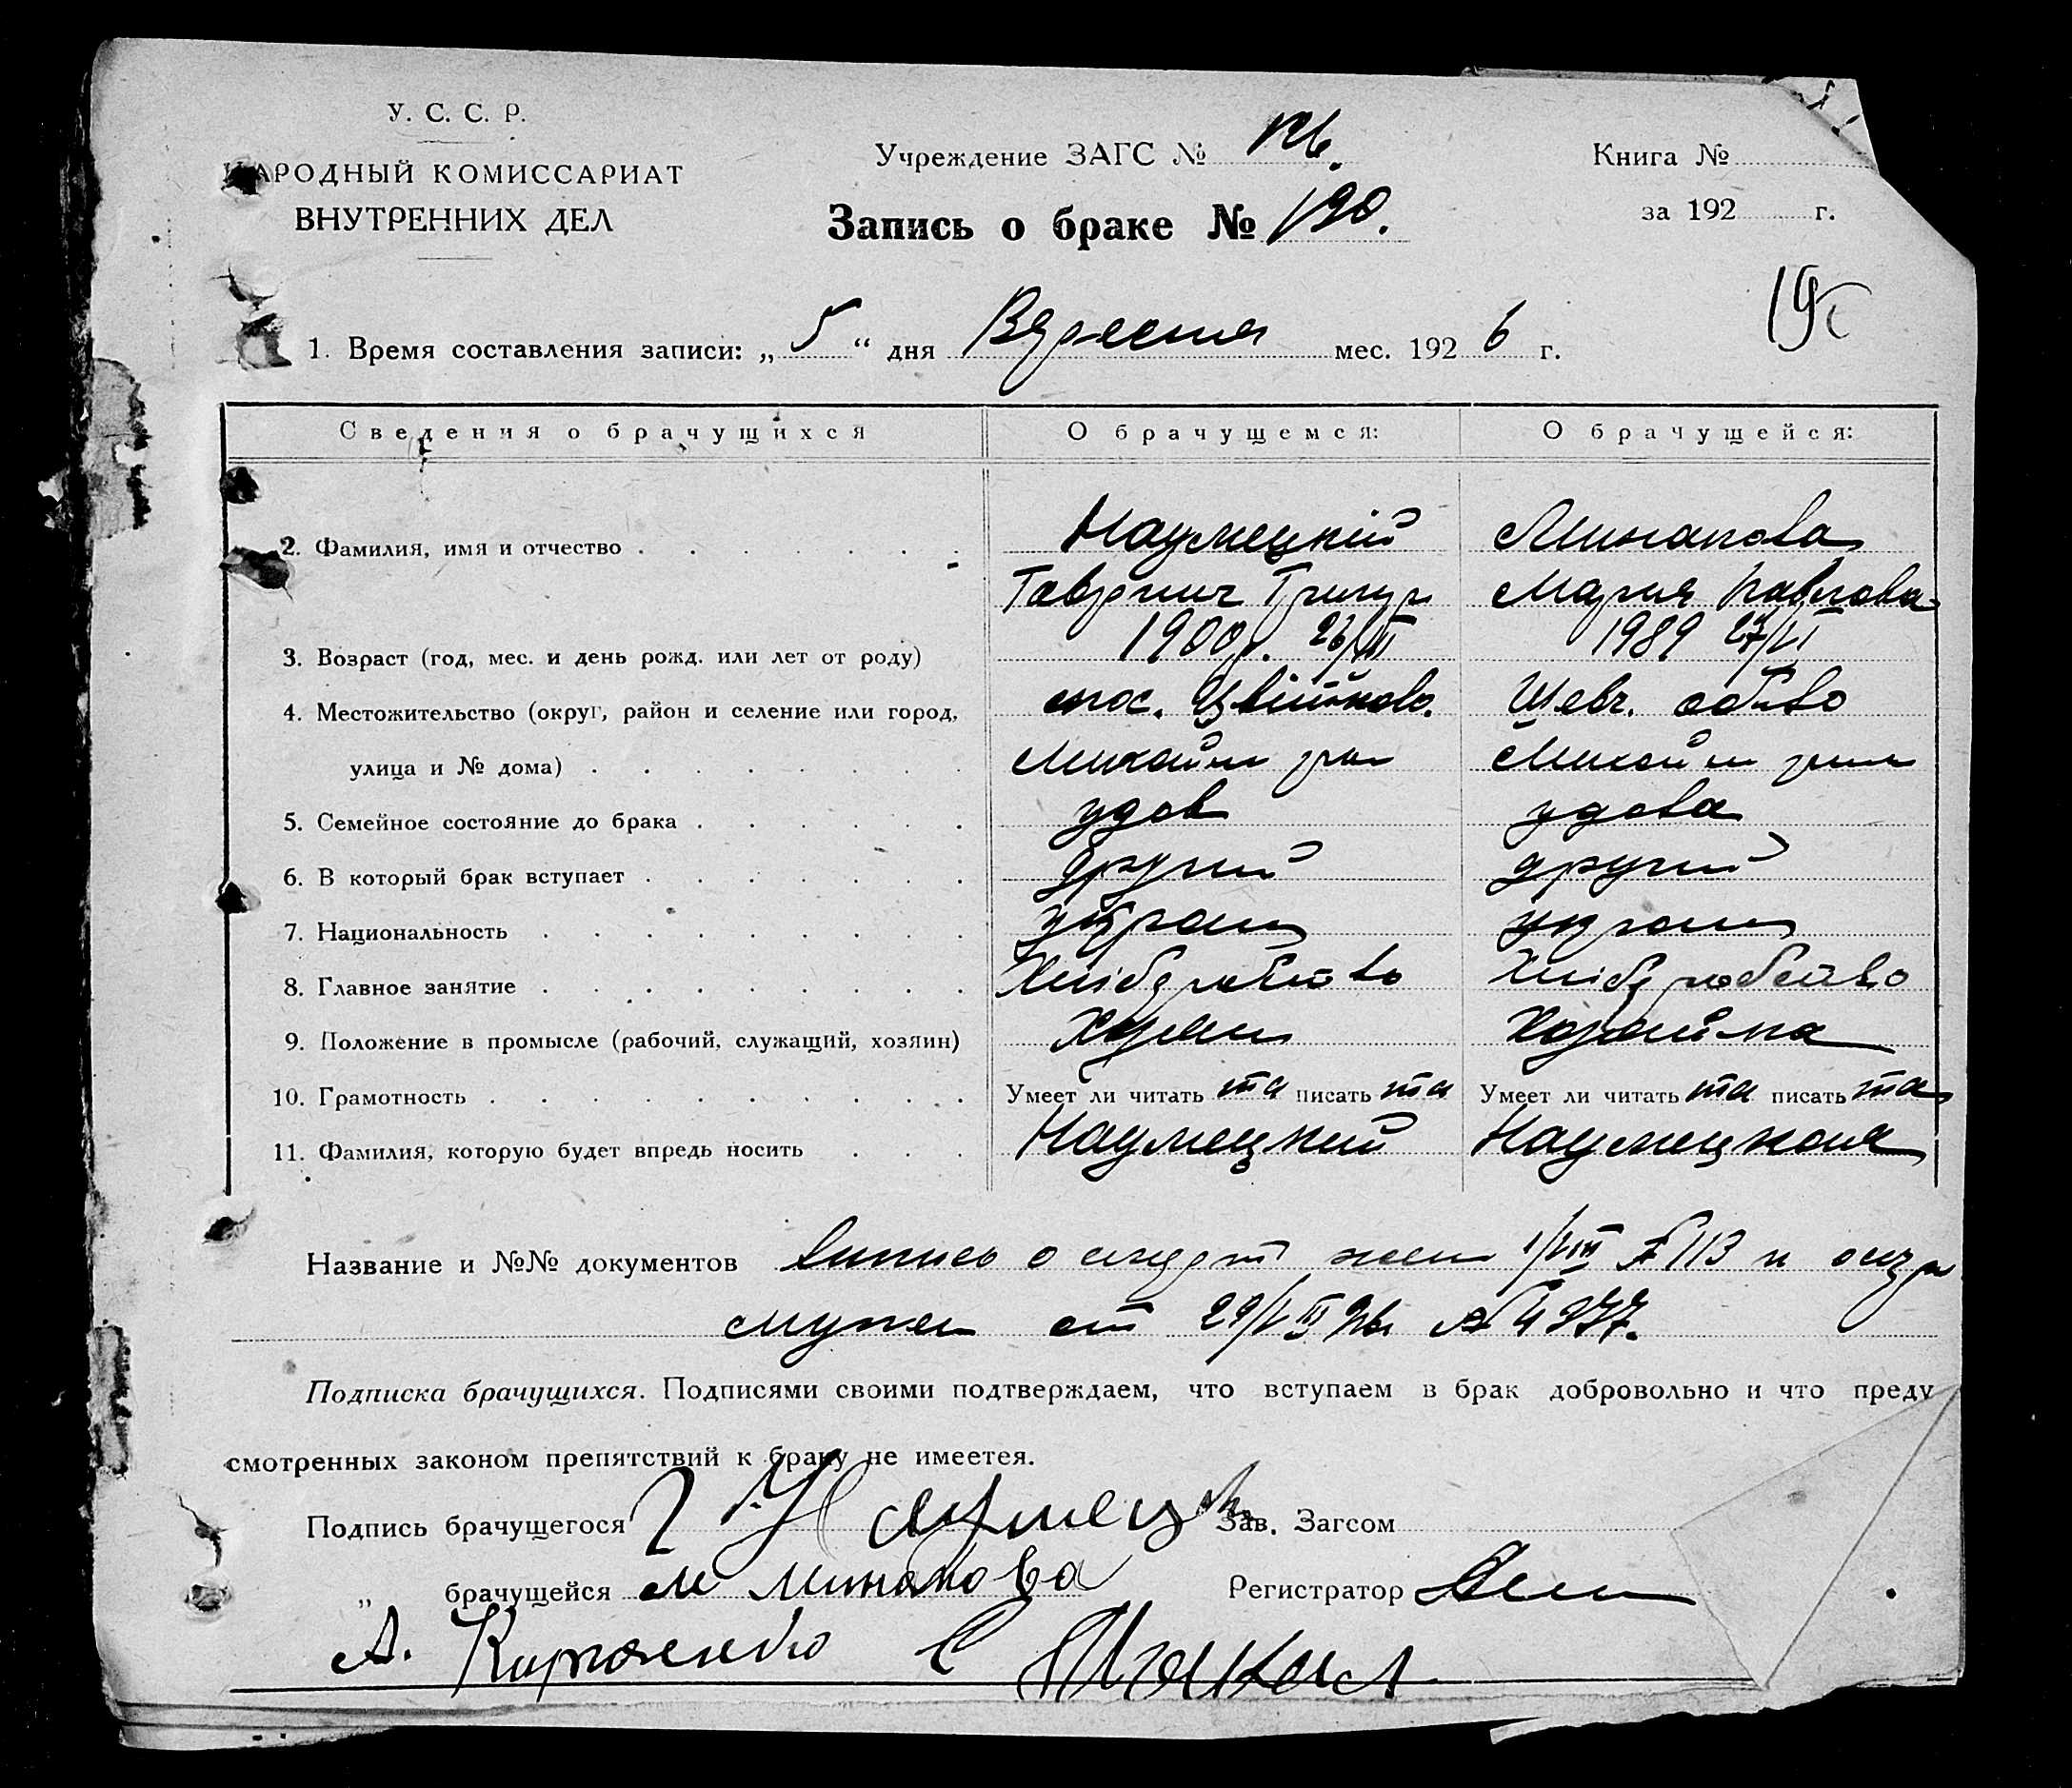 У. С. С. Р.
НАРОДНЫЙ КОМИССАРИАТ
ВНУТРЕННИХ ДЕЛ
Учреждение ЗАГС №
Запись о браке № 190.
Книга №
за 192 г.
1. Время составления записи: „ 5 “ дня Вересня мес. 192 6 г.
Сведения о брачущихся О брачущемся: О брачущейся:
2. Фамилия, имя и отчество Наумецкій Минакова
Гавріил Григор Мария Павлова
3. Возраст (год, мес. и день рожд. или лет от роду) 1900 р. 1989 27/VI
4. Местожительство (округ, район и селение или город, пос. Цвітково. Шевч.
улица и № дома)
5. Семейное состояние до брака удов удова
6. В который брак вступает другий другий
7. Национальность украин украин
8. Главное занятие Хлібороб­ство Хлібороб­ство
9. Положение в промысле (рабочий, служащий, хозяин) Хозяин Хозяйка
10. Грамотность Умеет ли читать та писать та Умеет ли читать та писать та
11. Фамилия, которую будет впредь носить Наумецкий Наумецкоия
Название и №№ документов о смерт жен 1/VIII № 113 и
мужа от 29/VIII 26 № 4377.
Подписка брачущихся. Подписями своими подтверждаем, что вступаем в брак добровольно и что преду
смотренных законом препятствий к браку не имеетея.
Подпись брачущегося Г Наумец Зав. Загсом
„ брачущейся М Минакова Регистратор
А.